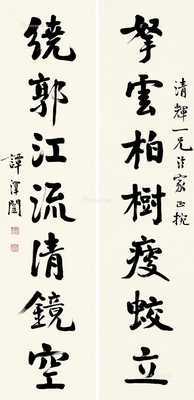 清輝一兄法家正捥
拏雲柏樹瘦蛟立
繞郭江流清鏡空
譚澤闓